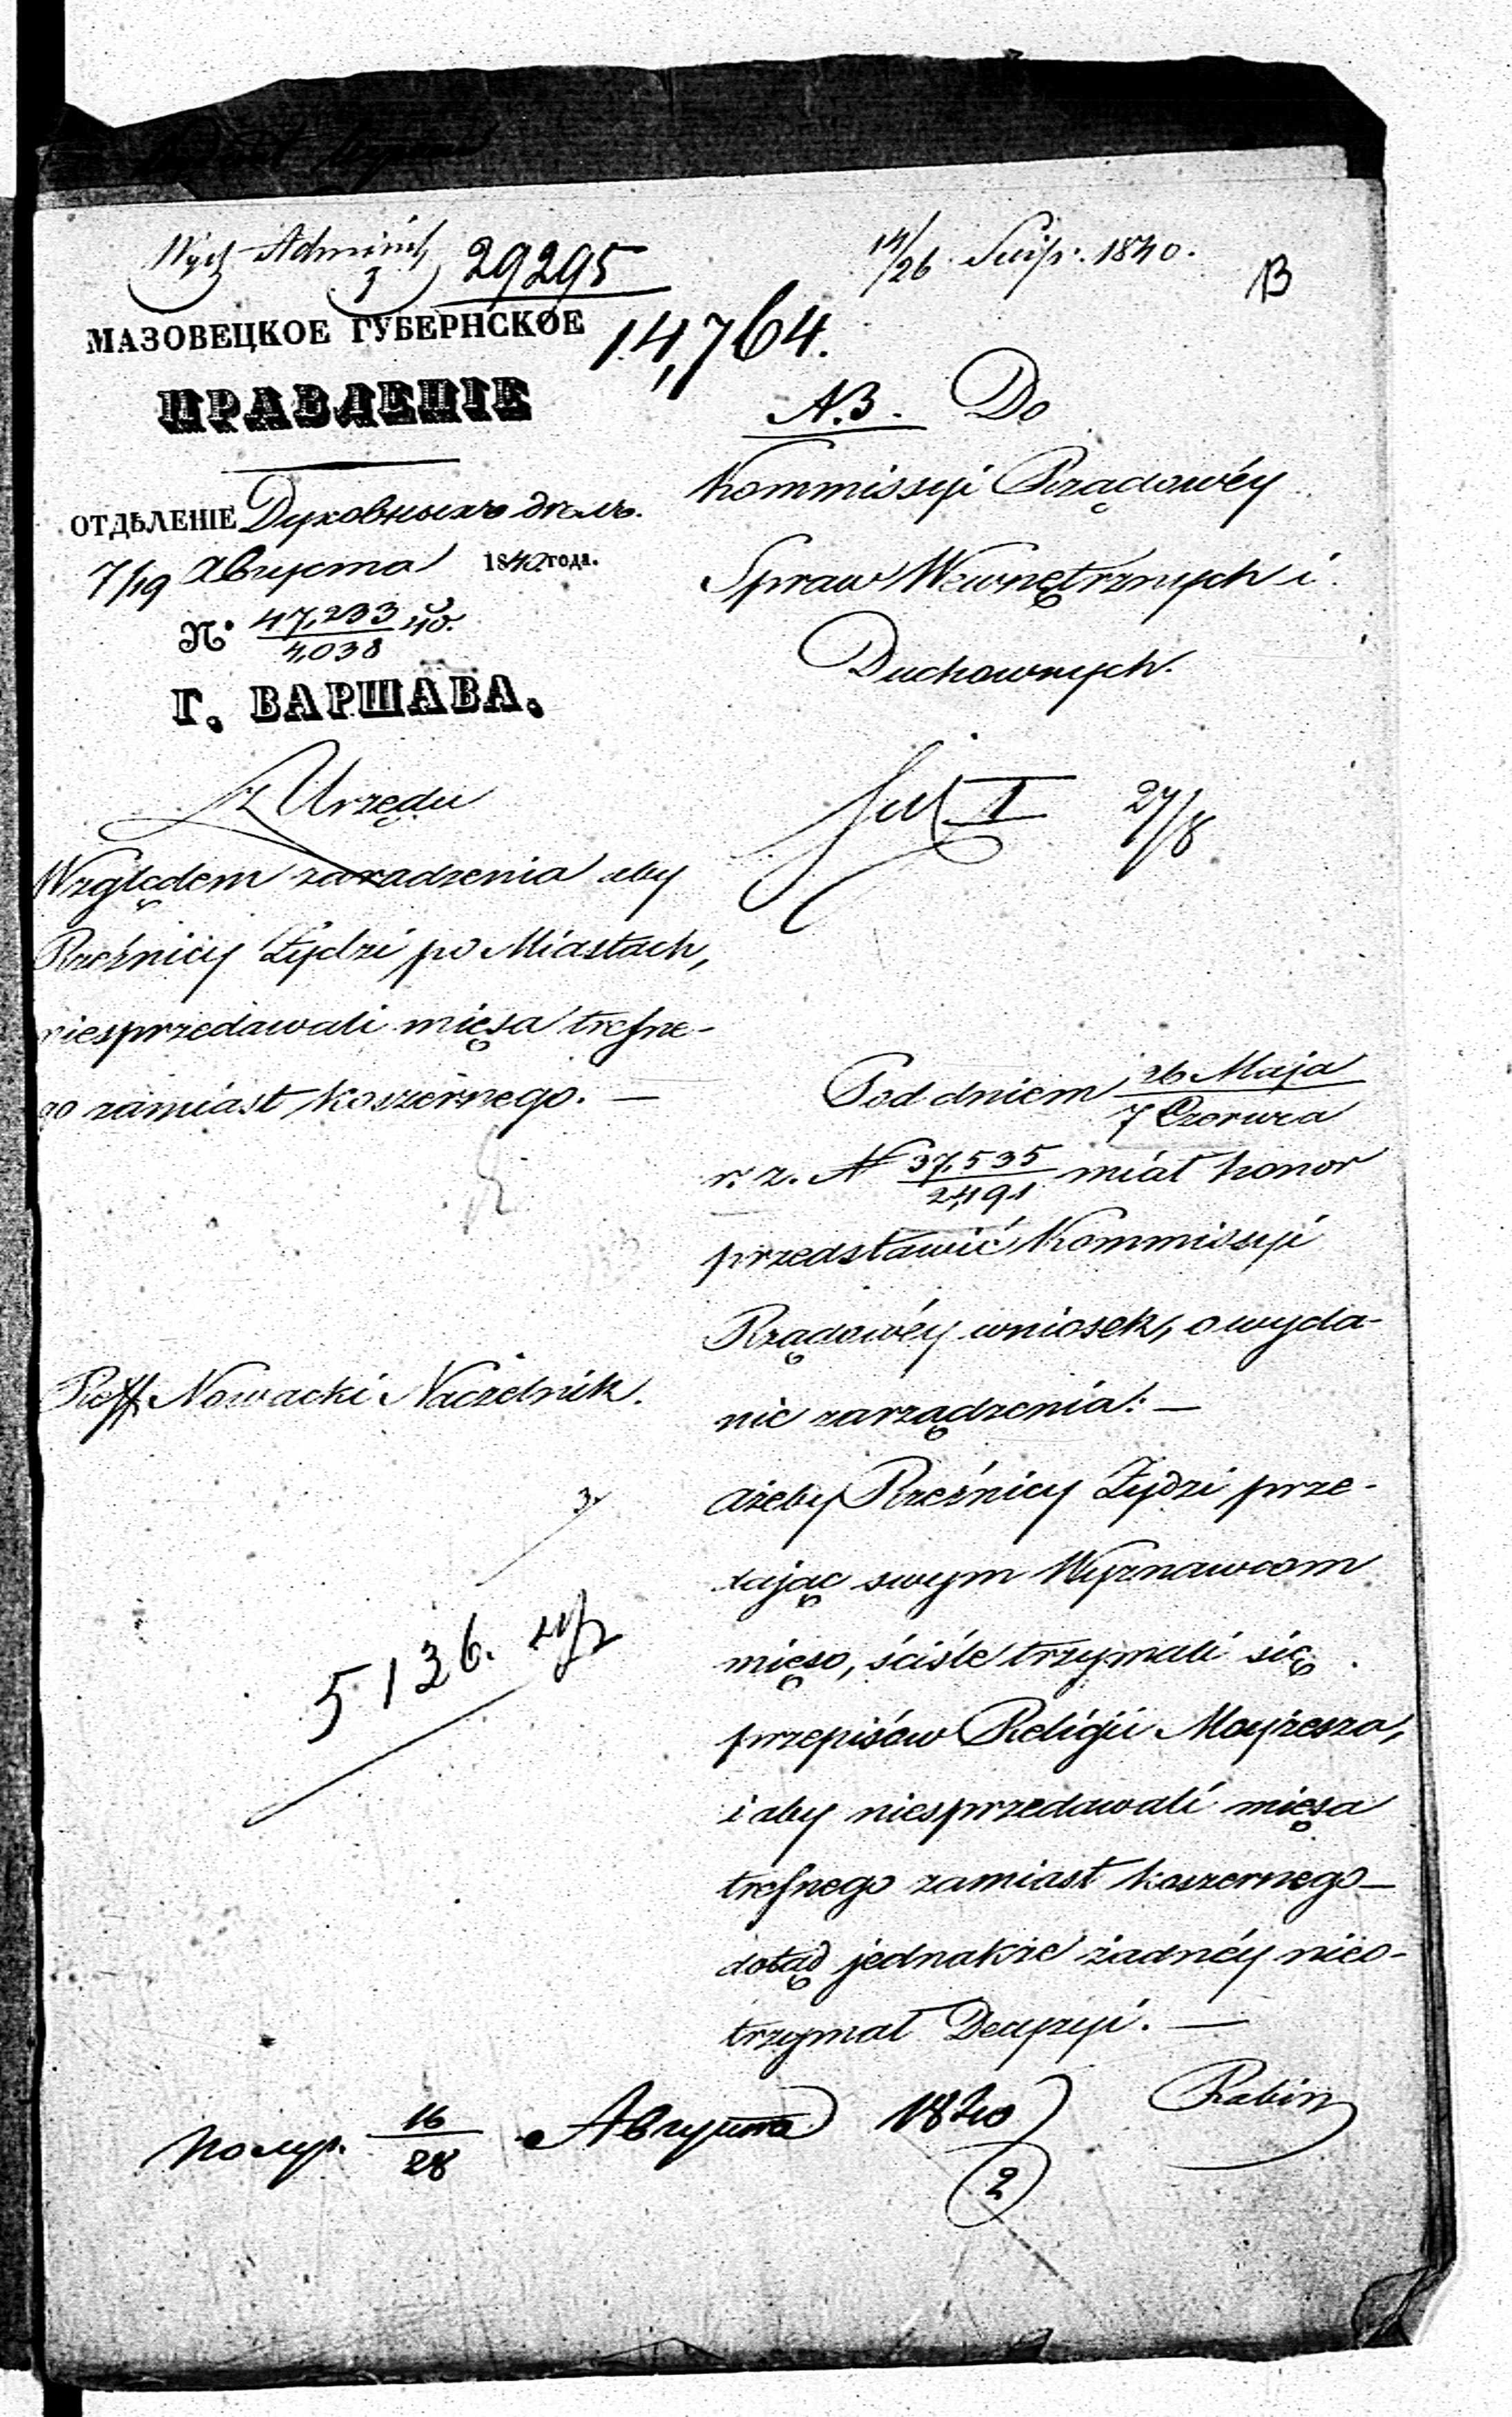 Wyd. Administ. 29295
3
14/26 Sierp. 1840.
13
МАЗОВЕЦКОЕ ГУБЕРНСКОЕ
14,764.
ПРАВЛЕНІЕ
ОТДѢЛЕНІЕ Духовныхъ дѣлъ.
7/19 Августа 1840 года.
N° 47,233/4,038 40.
Г. ВАРШАВА.
z Urzędu
Względem zaradzenia aby
Rzeźnicy Żydzi po Miastach,
niesprzedawali mięsa trefne-
go zamiast koszernego. —
Reff. Nowacki Naczelnik.
3.
5136.
A.3. Do
Kommissyi Rządowéy
Spraw Wewnętrznych i
Duchownych.
I 27/8
Pod dniem 26 Maja/7 Czerwca
r. z. N 37,535/2,191 miał honor
przedstawić Kommissyi
Rządowéy wniosek, o wyda-
nie zarządzenia: —
ażeby Rzeźnicy Żydzi prze-
dając swym Wyznawcom
mięso, ściśle trzymali się
przepisów Religii Mojżesza,
i aby niesprzedawali mięsa
trefnego zamiast koszernego —
dotąd jednakże żadnéy nieo-
trzymał Decyzyi. —
Rabin
Получ. 16/28 Августа 1840
2